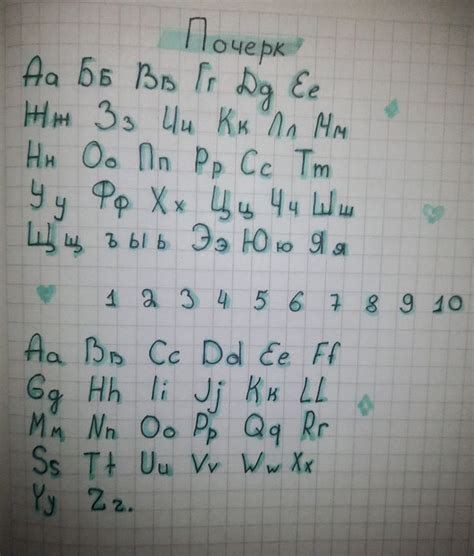 Почерк
Аа Бб Вв Гг Dg Ее
Жж Зз Ии Кк Лл Мм
Нн Оо Пп Рр Сс Тт
Уу Фф Хх Цц Чч Шш
Щщ ъ ы ь Ээ Юю Яя
1 2 3 4 5 6 7 8 9 10
Aa Bb Cc Dd Ee Ff
Gg Hh Ii Jj Kk LL
Mm Nn Oo Pp Qq Rr
Ss Tt Uu Vv Ww Xx
Yy Zz.